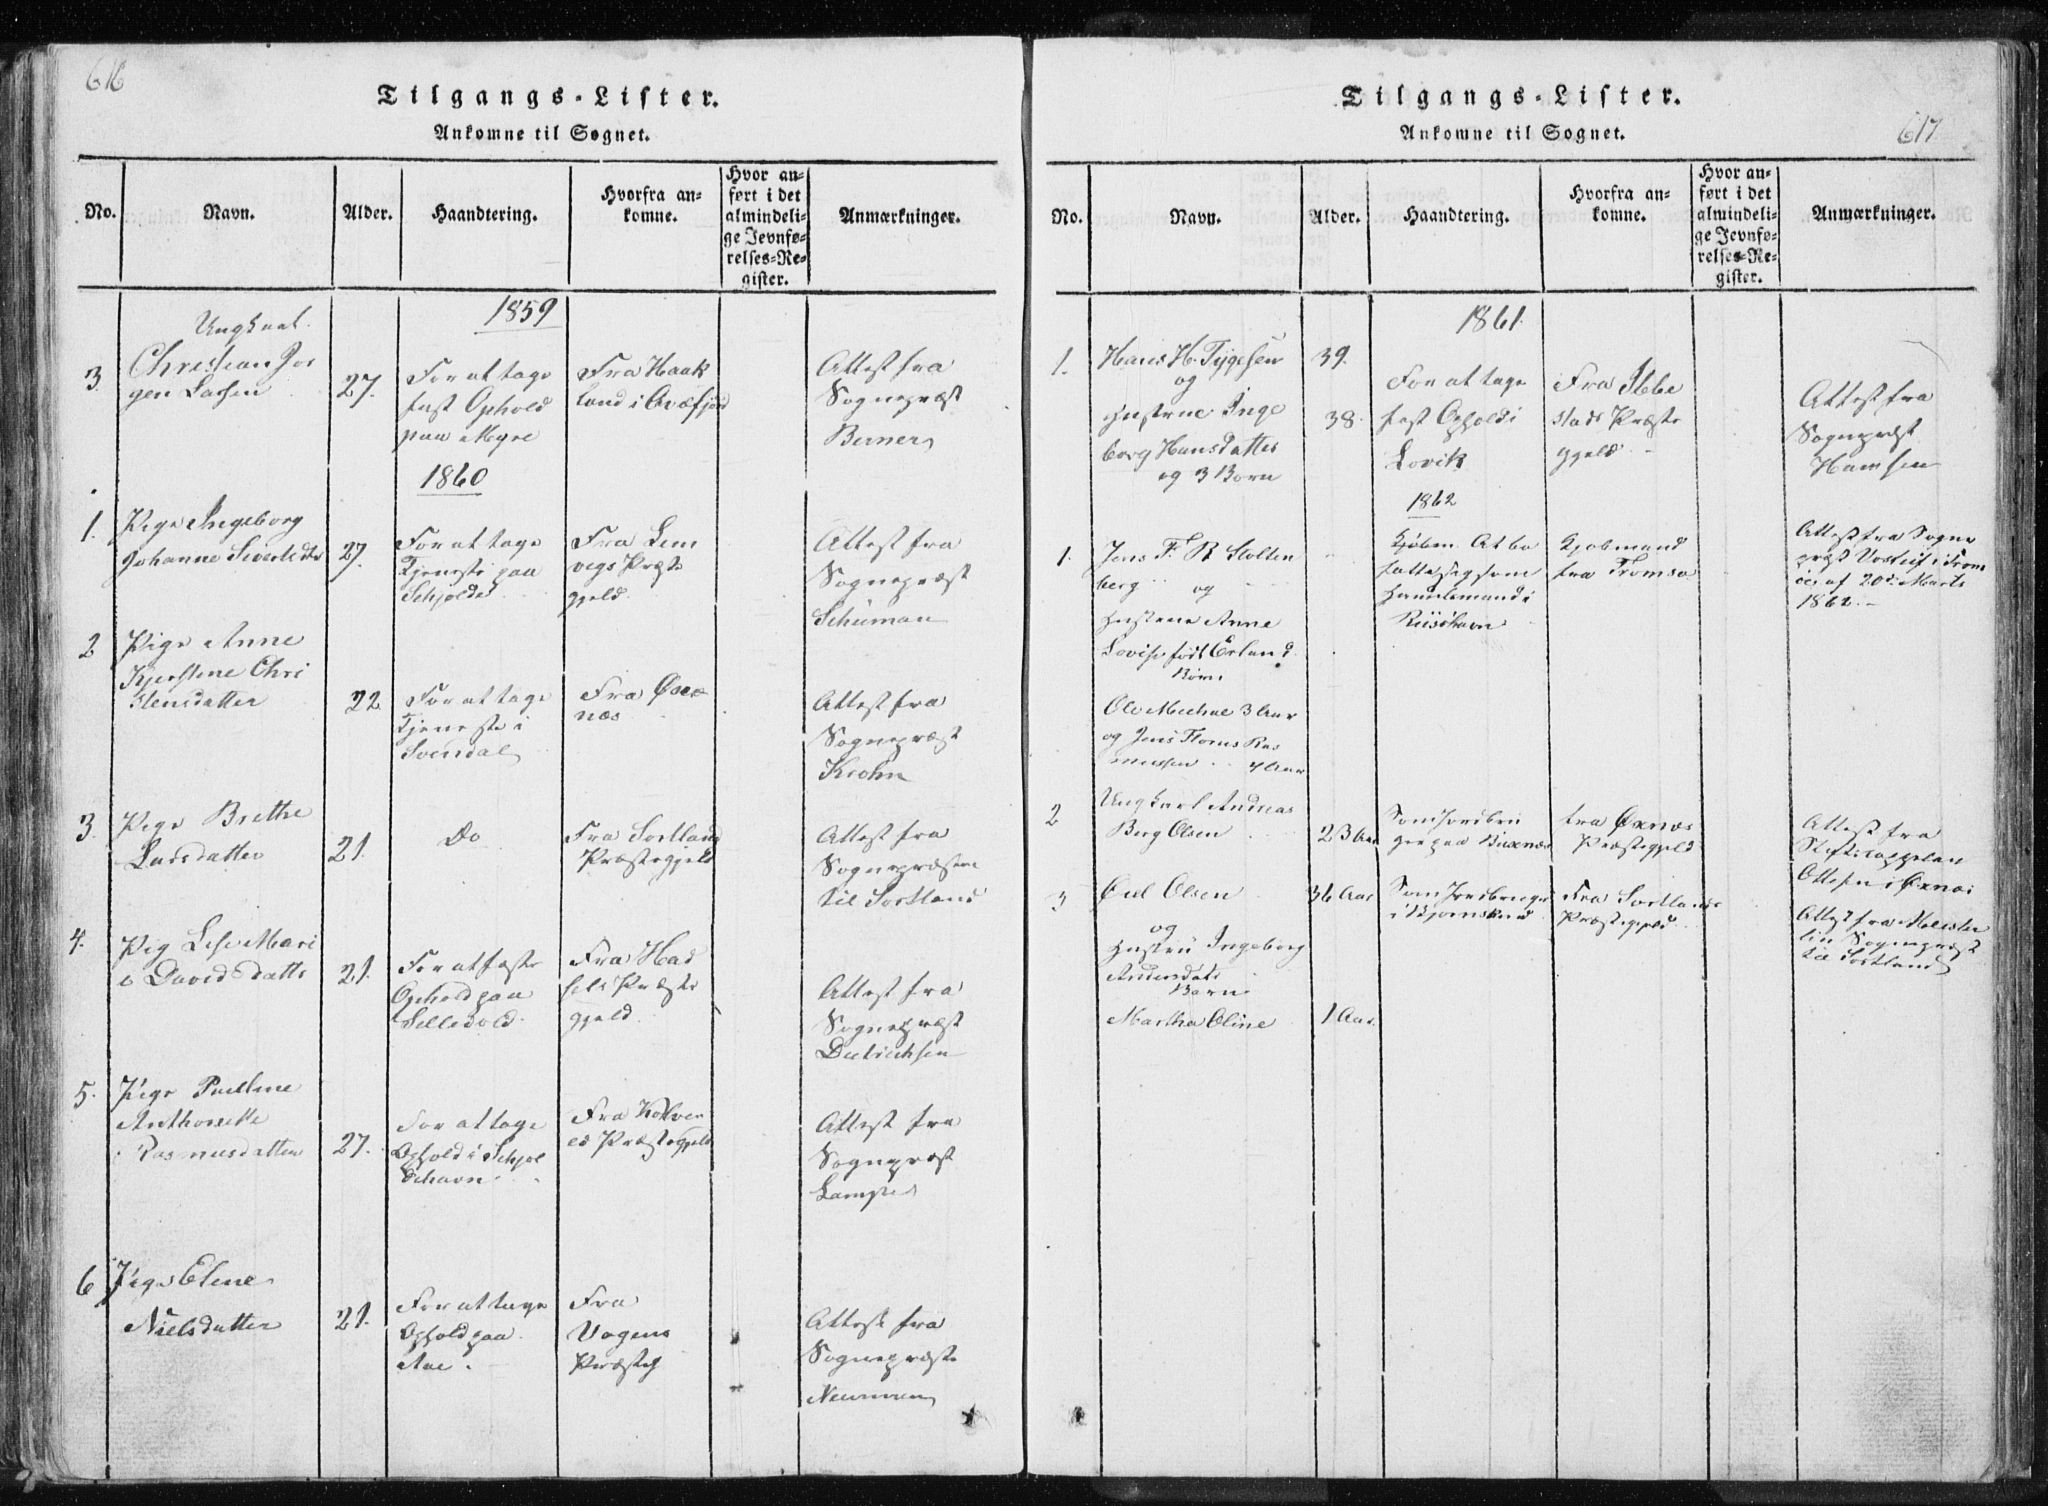 616
Tilgangs-Lister.
Ankomne til Sognet.
No.
Navn.
Alder.
Haandtering.
Hvorfra an-
komne.
Hvor an-
ført i det
almindeli-
ge Jevnfø-
relses-Re-
gister.
Anmærkninger.
1859
3
Ungkarl
Christian Jor
gen Larsen
27.
For at tage
fast Ophold
paa Myre
Fra Haak
land i Qvæfjord
Attest fra
Sognepræst
Berner
1860
1.
Pige Ingeborg
Johanne Sivertsdtr
27.
For at tage
Tjeneste paa
Fra Lem
vigs Præste
gjeld.
Attest fra
Sognepræst
Schuman
2
Pige Anne
Kjerstine Chri
stensdatter
22
For at tage
Tjeneste i
Svendal
Fra Øxe
næs
Attest fra
Sognepræst
Krohn
3.
Pige Brethe
Larsdatter
21.
Do
Fra Sortlands
Præstegjeld
Attest fra
Sognepræsten
til Sortland
4.
Pig Lise Mari
e Davidsdatter
21.
For at faste
Ophold paa
Fra Had
sels Præste
gjeld.
Attest fra
Sognepræst
Dietrichsen
5.
Pige Pauline
Anthonette
Rasmusdatter
27.
For at tage
Ophold i Skjol
dehavn
Fra
Præstegjeld
Attest fra
Sognepræst
Lampe
6
Pige Eline
Nielsdatter
21.
For at tage
Ophold paa
Aae.
Fra
Vagens
Præsteg
Attest fra
Sognepræst
Neumann
617
Tilgangs-Lister.
Ankomne til Sognet.
No.
Navn.
Alder.
Haandtering.
Hvorfra an-
komne.
Hvor an-
ført i det
almindeli-
ge Jevnfø-
relses-Re-
gister.
Anmærkninger.
1861.
1.
Hans H. Tygesen
og
Hustrue Inge
borg Hansdatter
og 3 Børn
39.
38.
For at tage
fast Ophold i
Lovik
Fra Ibbe
stads Præste
gjeld
Attest fra
Sognepræst
Hamsen
1862
1.
Jens F. R Stolten
berg og
Hustrue Anne
Lovise født Erland.
Børn
Ole Michael 3 Aar
og Jens Thomas Ras
mussen 4 Aar
Kjøbm. At be
satte sig som
Handelsmand i
Riisøhavn
Kjøbmand
fra Tromsø
Attest fra Sogne
præst i Trom
sø af 20de Marts
1862.
2
Ungkarl Andreas
Berg Olsen
23 Aar
Som Jordbru
ger paa
fra Øxnæs
Præstegjeld
Attest fra
Stiftscapelan
Ottesen i Øxnæs
3
Øel Olsen
og
Hustru Ingeborg
Andersdatr
Barn
Martha Oline
36 Aar
1 Aar.
Som Jordbruger
i Bjørnskind
Fra Sortlands
Præstegjeld
Attest fra
Sognepræst
til Sortland